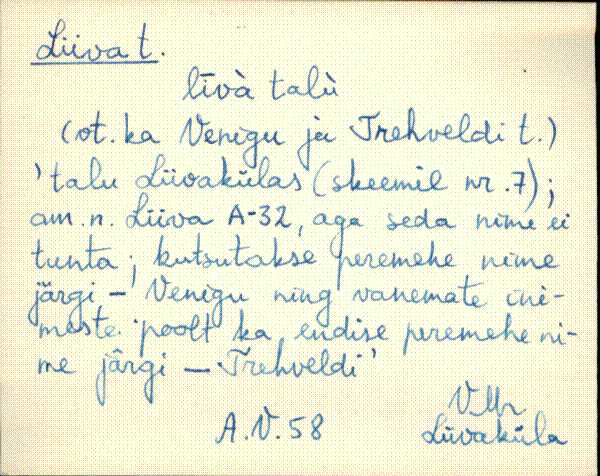 Liiva t.
līvà talù
(vt. ka Venigu ja Trehveldi t.)
'talu Liivakülas (skeemil nr. 7);
am. n. Liiva A-32, aga seda nime ei
tunta; kutsutakse peremehe nime
järgi – Venigu ning vanemate ini-
meste poolt ka endise peremehe ni-
me järgi – Trehveldi'
VMr
A.V. 58
Liivaküla